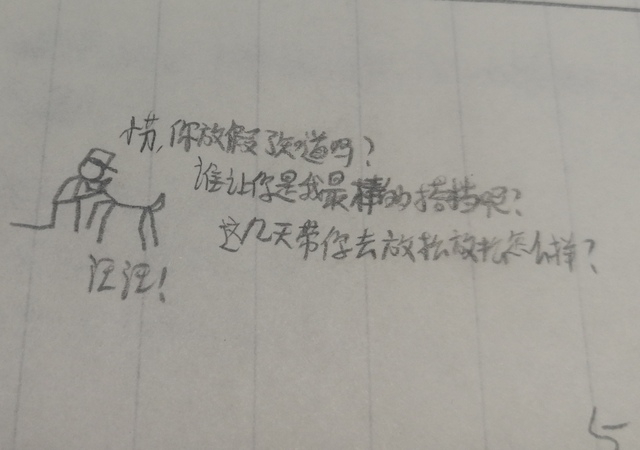 嘿，你放假了知道吗？
谁让你是我最棒的搭档呢？
这几天带你去放松放松怎么样？
汪汪！
5